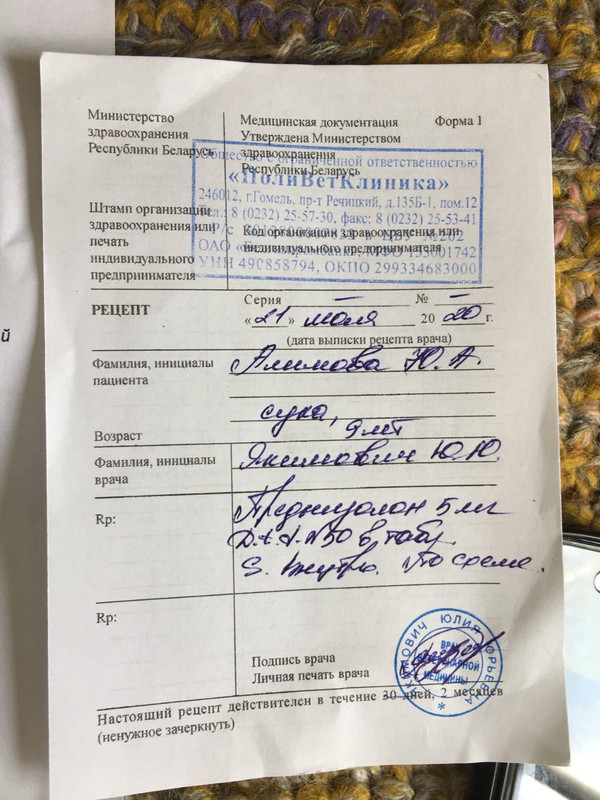 й
Министерство
здравоохранения
Республики Беларусь
Медицинская документация Форма 1
Утверждена Министерством
здравоохранения
Республики Беларусь
Общество с ограниченной ответственностью
«ПолиВетКлиника»
246012, г.Гомель, пр-т Речицкий, д.135Б-1, пом.12
тел.: 8 (0232) 25-57-30, факс: 8 (0232) 25-53-41
Р/с
ЦБУ №202
ОАО МФО 153001742
УНН 490858794, ОКПО 299334683000
Штамп организации
здравоохранения или
печать
индивидуального
предпринимателя
Код организации здравоохранения или
индивидуального предпринимателя
РЕЦЕПТ
Серия — № —
«21» июля 20 20 г.
(дата выписки рецепта врача)
Фамилия, инициалы
пациента
Алимова Ю. А.
сука, 9 лет
Возраст
Фамилия, инициалы
врача
Якимович Ю.Ю.
Rp:
Преднизолон 5 мг
D.t.d. N50 в табл.
S. Внутрь. По схеме.
Rp:
Подпись врача
Личная печать врача
ЯКИМОВИЧ ЮЛИЯ ЮРЬЕВНА
ВРАЧ
ВЕТЕРИНАРНОЙ
МЕДИЦИНЫ
Настоящий рецепт действителен в течение 30 дней, 2 месяцев
(ненужное зачеркнуть)